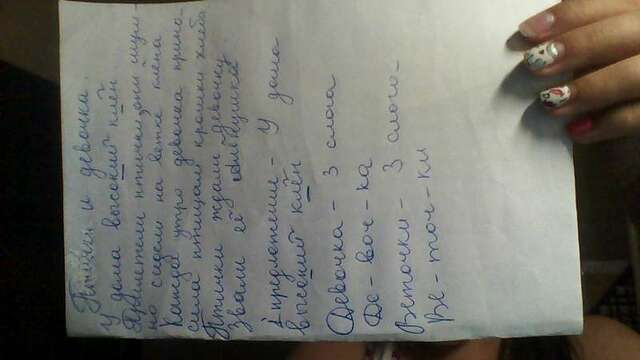 Птички и девочка.
У дома высокий клён
Прилетели птички, они шум-
но сидели на ветке клёна
Каждое утро девочка прино
сила птицам крошки хлеба
Птички ждали девочку
Звали её
1 предложение - У дома
высокий клён
Девочка - 3 слога
Де - воч - ка
Веточки - 3 слога -
Ве - точ - ки